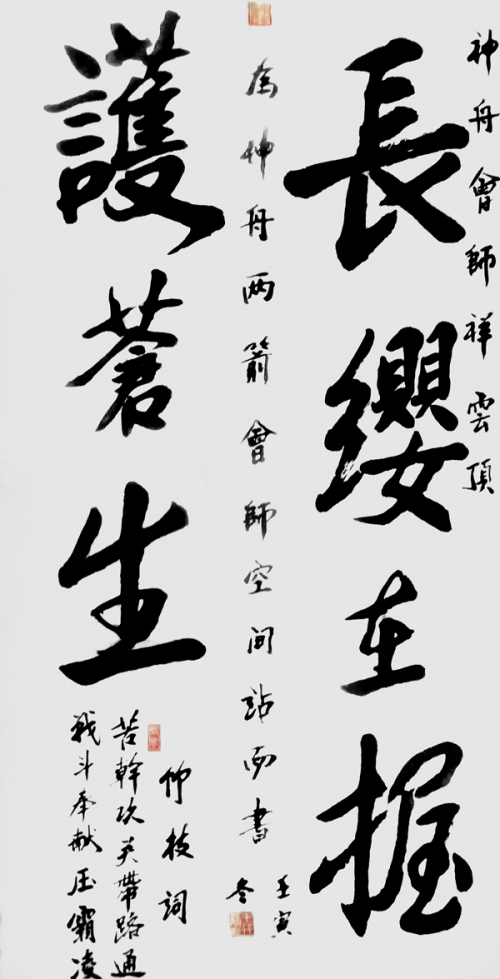 神舟會師祥雲頂
長纓在握
為神舟两箭會師空间站而書
壬寅
冬
護蒼生
竹枝詞
苦幹攻关帶路通
战斗奉献压霸凌